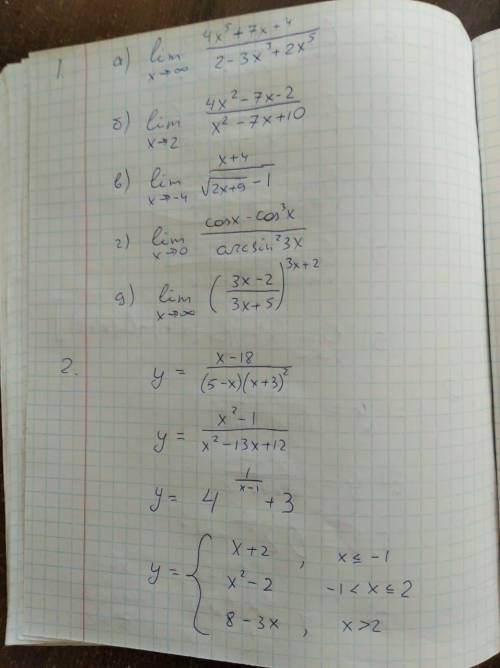 1. а) lim x→∞ (4x⁵ + 7x + 4)/(2 - 3x³ + 2x⁵)
б) lim x→2 (4x² - 7x - 2)/(x² - 7x + 10)
в) lim x→-4 (x + 4)/(√(2x+9) - 1)
г) lim x→0 (cosx - cos³x)/(arcsin²3x)
д) lim x→∞ ((3x - 2)/(3x + 5))^(3x+2)
2. y = (x - 18)/((5 - x)(x + 3)²)
y = (x² - 1)/(x² - 13x + 12)
y = 4^(1/(x-1)) + 3
y = { x + 2 , x ≤ -1
x² - 2 -1 < x ≤ 2
8 - 3x , x > 2